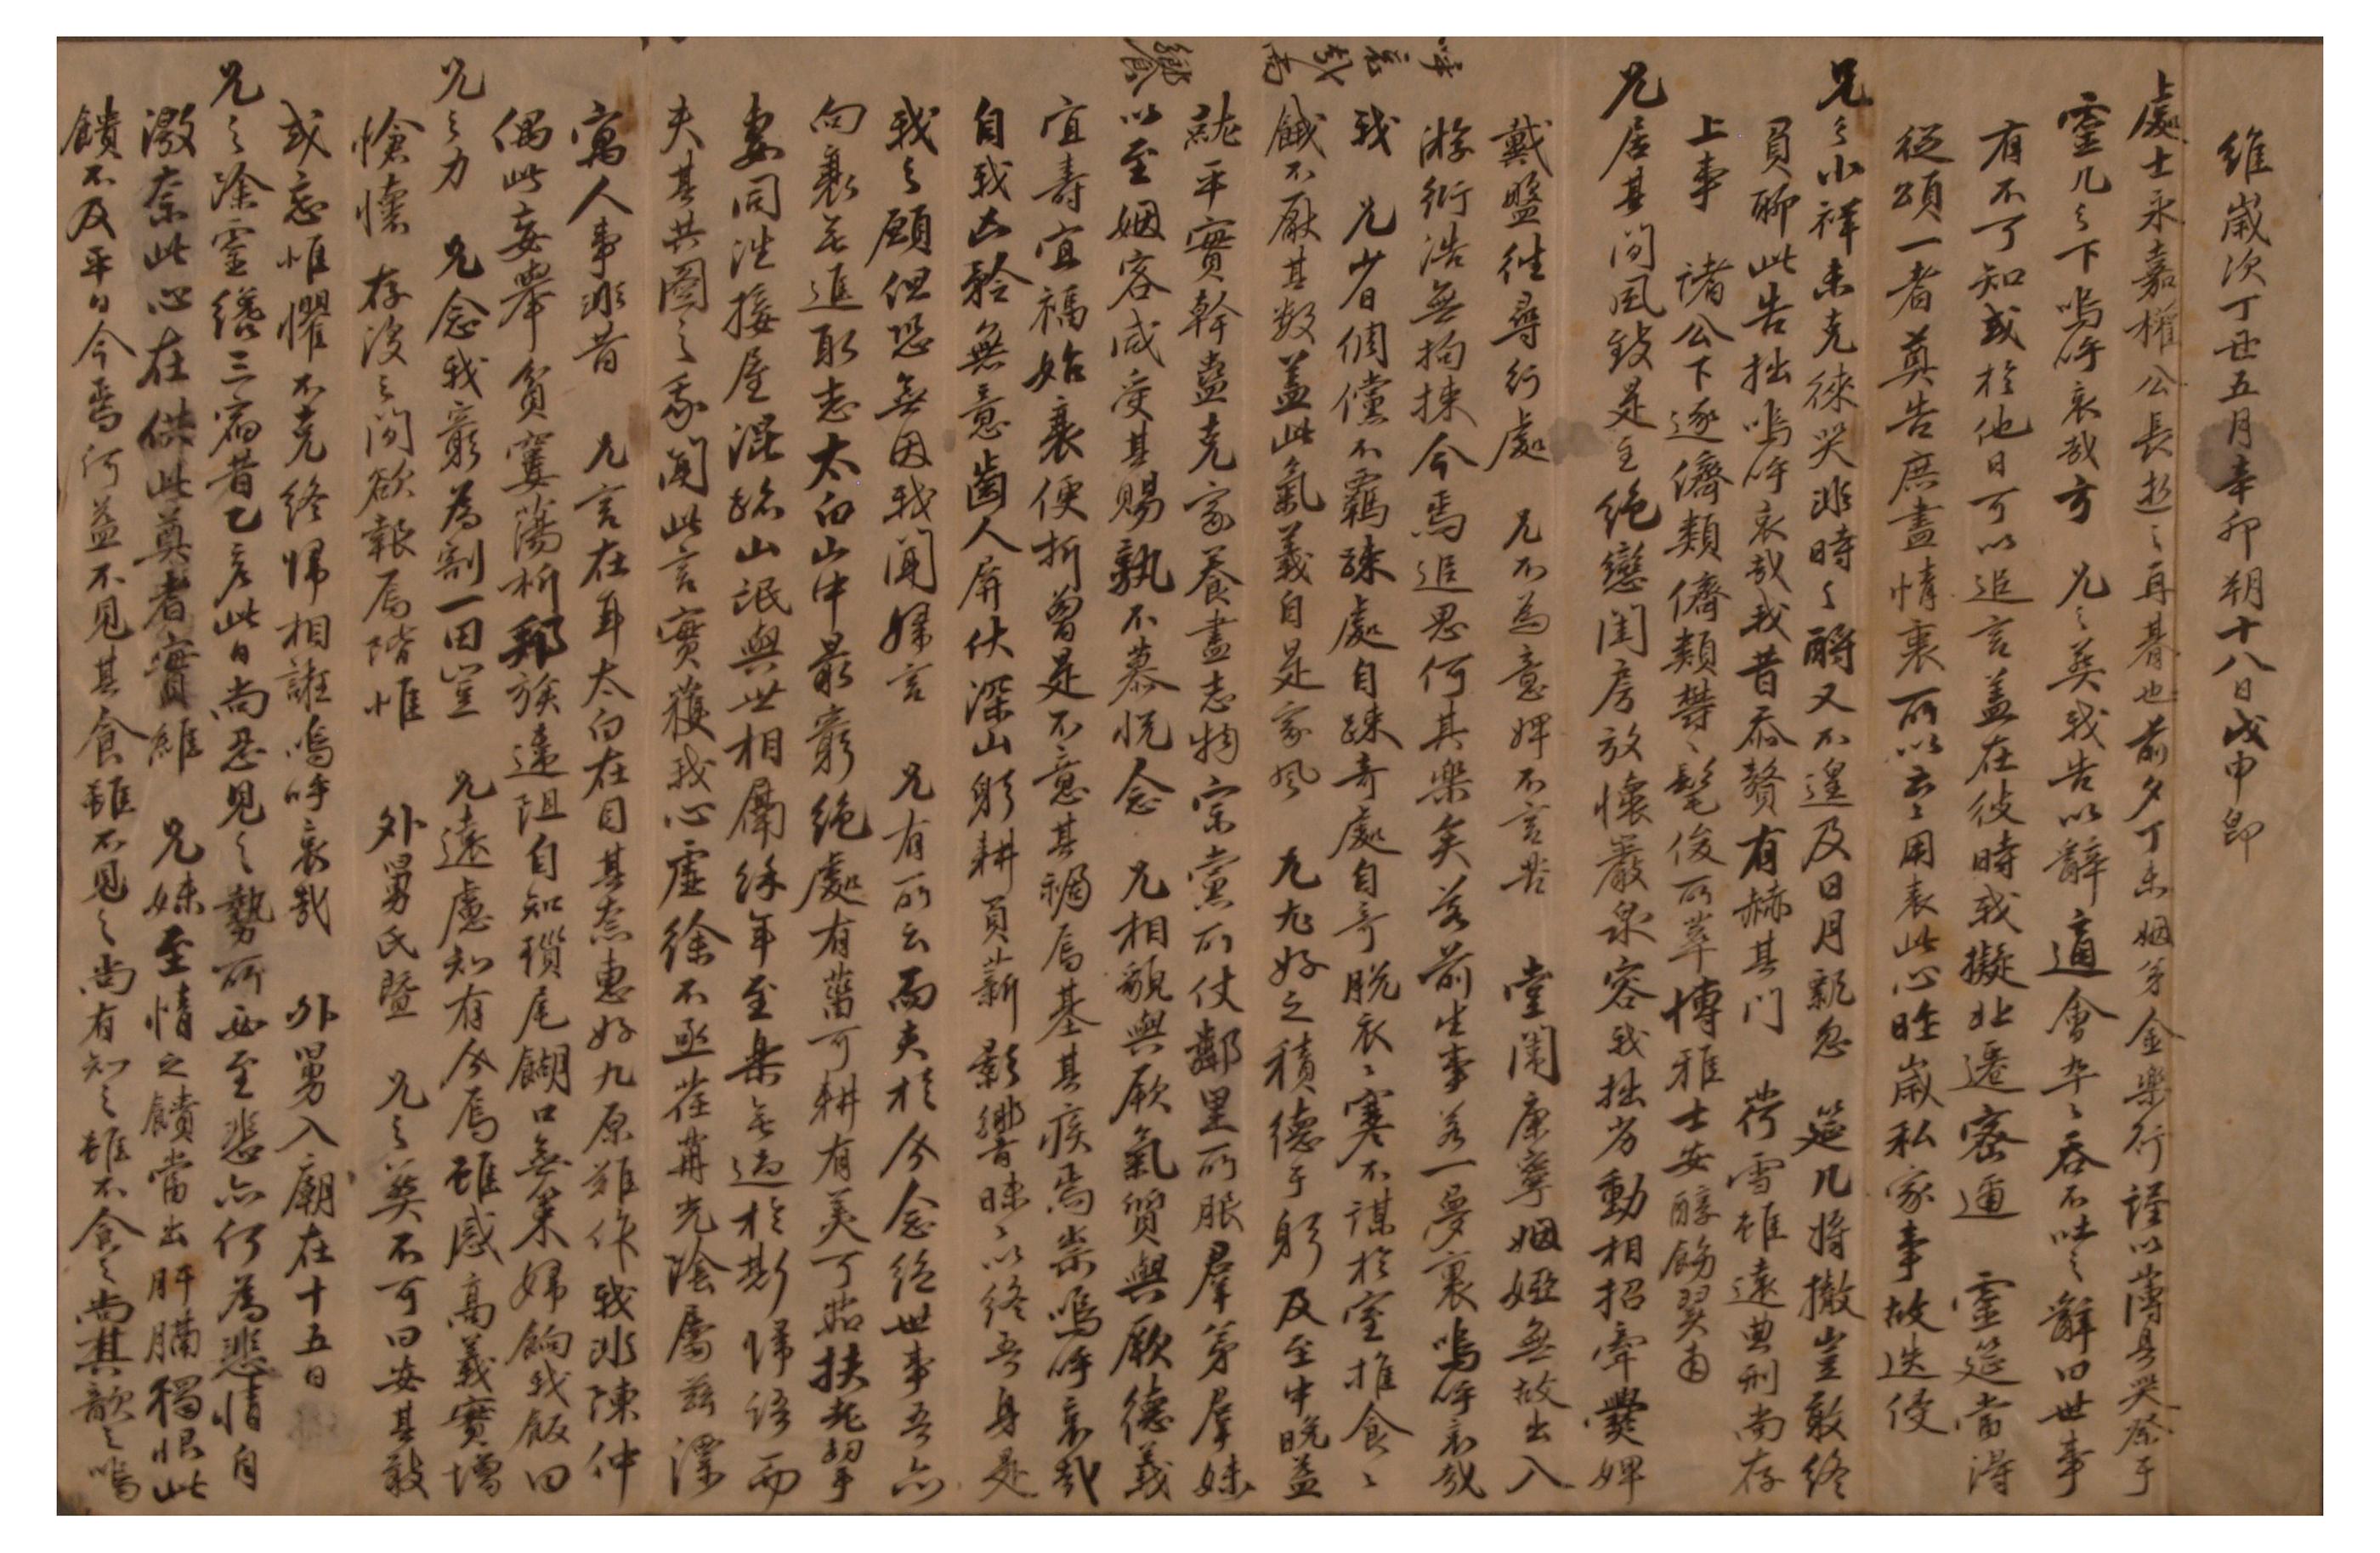 維歲次丁丑五月辛卯朔十八日戊申卽
上處士永嘉權公長逝之再朞也前夕丁未姻弟金樂行謹以薄具哭奠于
靈几之下嗚呼哀哉方 兄之葬我告以辭適會卒卒呑不吐之辭曰世事
有不可知或於他日可以追言盖在彼時我擬北遷密邇 靈筵當得
從頌一者奠告庶盡情裏所以云云用表此心昨歲私家事故迭侵
兄之小祥未克徠哭非時之酹又不遑及日月飄忽 筵几將撤豈敢終
負聊此告拙嗚呼哀哉我昔忝贅有赫其門 荷雪雖遠典刑尚存
上事 諸公下逐儕類儕類髦俊所萃博雅士安醇飭翼甫
兄居其間風致是主絶戀閨房放懷巖泉容我拙劣動相招牽爨婢
戴盤徃尋行處 兄不爲意婢不言苦 堂闈康寧姻婭無故出入
游衍浩無拘揀今焉追思何其樂矣若前生事若一夢裏嗚呼哀哉
我 兄少日倜儻不羈踈處自踈奇處自奇脫衣衣寒不謀於室推食食
餓不厭其數盖此氣義自是家風 兄尤好之積德于躬及至中晩益
就平實幹蠱克家養盡志物宗黨所仗鄰里所服羣弟羣妹
以至姻客咸受其賜孰不慕悅念 兄相貌與厥氣質與厥德義
宜壽宜福始衰便折曾是不意其禍焉基其疾焉祟嗚呼哀哉
自我亡 無意齒人屛伏深山躬耕負薪影響昧昧以終吾身是
我之願但恐無因我聞婦言 兄有所云而夫於今念絶世事吾亦
向衰無進取志太白山中最窮絶處有菑可耕有美可茹扶老挈
妻同泩接屋混跡山氓與世相屬終年至樂無過於斯歸語而
夫其共圖之我聞此言實獲我心虛徐不亟荏苒光陰屬玆漂
寓人事非昔 兄言在耳太白在目其奈惠好九原難作我非陳仲
偶此妄擧貧窶蕩析鄕族遠阻自知瑣尾餬口無策婦餉我飯田
兄之力 兄念我窮爲割一田豈 兄遠慮知有今焉雖感高義實增
愴懷 存沒之間欲報焉階惟 外舅氏曁 兄之葬不可曰安其敢
或忘惟懼不克終歸相誑嗚呼哀哉 外舅入廟在十五日
兄之除靈纔三宿昔乙亥此日尚忍見之勢所必至悲亦何爲悲情自
激奈此心在供此奠者實維 兄妹至情之饋當出肝膈獨恨此
饋不及平日今焉何益不見其食雖不見之尚有知之雖不食之尚其歆之嗚
呼哀哉尚
饗